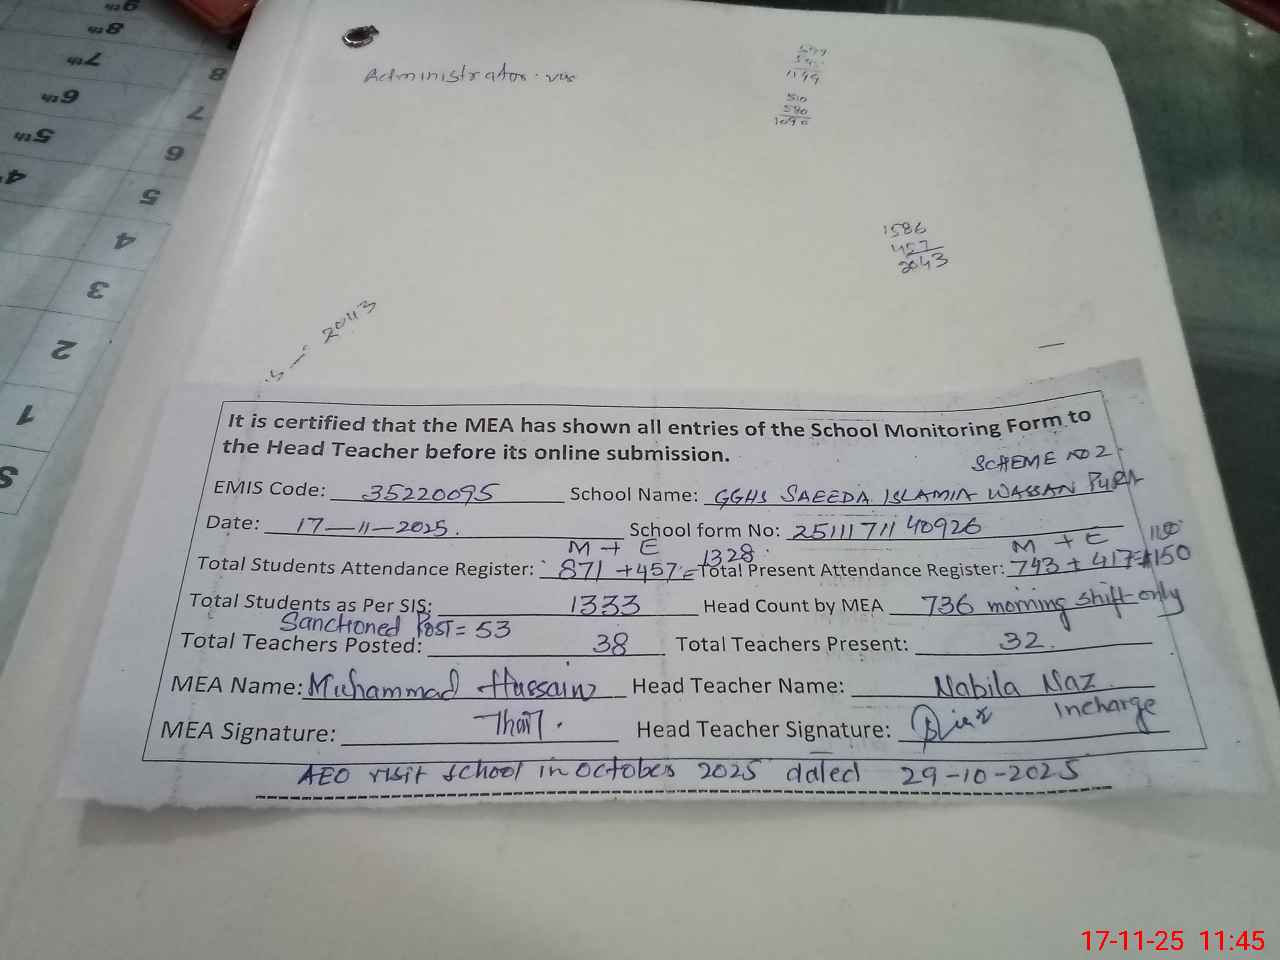 9th
8th
7th
6th
5th
8
7
6
5
4
3
2
1
S
Administrator
1149
510
580
1090
1586
457
2043
2043
It is certified that the MEA has shown all entries of the School Monitoring Form to
the Head Teacher before its online submission.
SCHEME NO 2
EMIS Code: 35220095 School Name: GGHS SAEEDA ISLAMIA WASSAN PURA
Date: 17-11-2025. School form No: 25111711 40926
M + E M + E 1150
Total Students Attendance Register: 871 + 457 = 1328 Total Present Attendance Register: 743 + 417 = 1150
Total Students as Per SIS: 1333 Head Count by MEA 736 morning shift only
Sanctioned Post = 53
Total Teachers Posted: 38 Total Teachers Present: 32.
MEA Name: Muhammad Hussain Head Teacher Name: Nabila Naz
Incharge
MEA Signature: Head Teacher Signature:
AEO visit school in October 2025 dated 29-10-2025
17-11-25 11:45